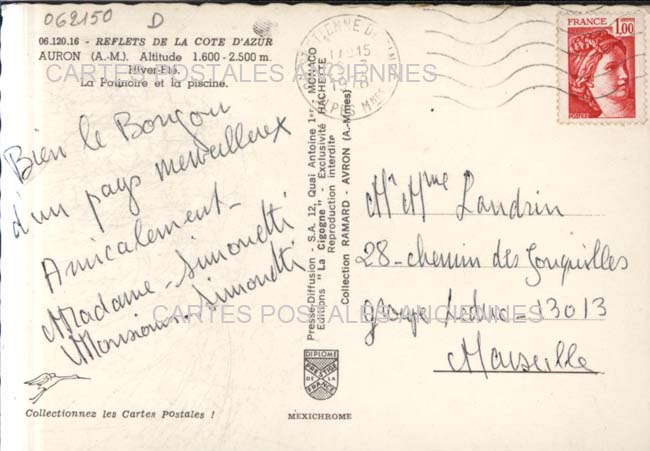 062150 D
06.120.16 - REFLETS DE LA COTE D'AZUR
AURON (A.-M.). Altitude 1.600 - 2.500 m.
Hiver-Eté.
La Patinoire et la piscine.
CARTES POSTALES ANCIENNES
Bien le Bonjour
d'un pays merveilleux
Amicalement -
Madame - Simonetti
Monsieur - Simonetti
Collectionnez les Cartes Postales !
Presse-Diffusion - S.A. 12, Quai Antoine 1er - MONACO
Editions "La Cigogne" - Exclusivité HACHETTE
Reproduction interdite
Collection RAMARD - AVRON (A.-Mmes)
DIPLOME
PRESTIGE
DE LA
FRANCE
MEXICHROME
ETIENNE DE TINEE
17 15
1978
FRANCE
1,00
POSTES
Mr Mme Landrin
28 - chemin des Jonquilles
13013
Marseille
CARTES POSTALES ANCIENNES